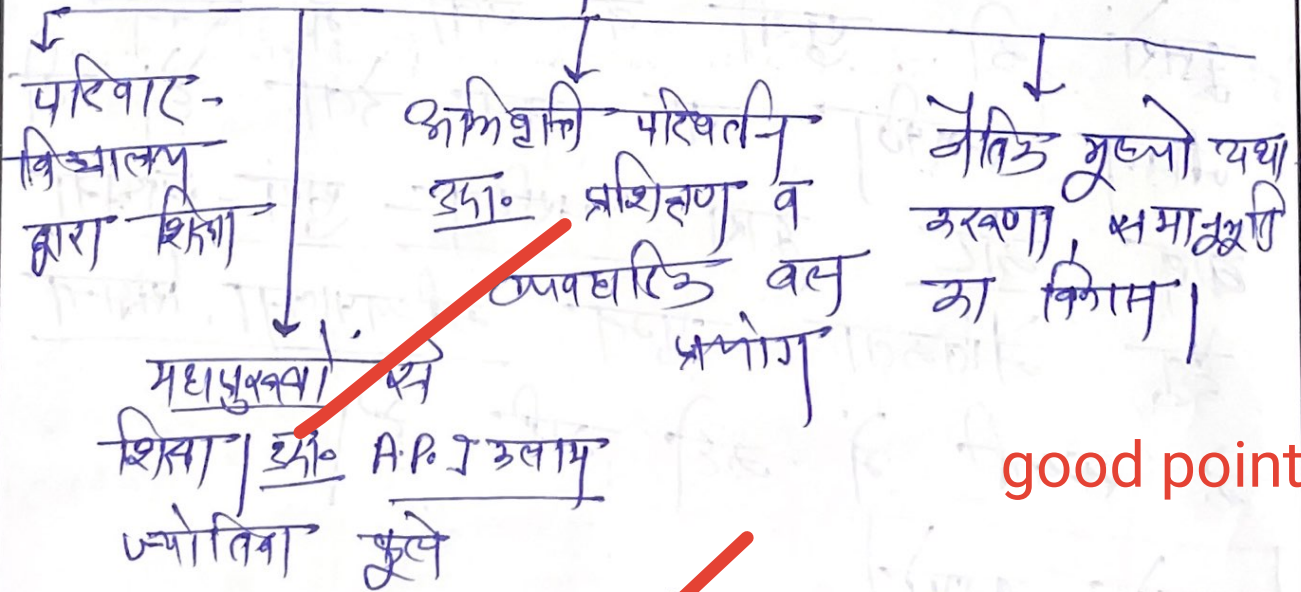 परिवार-
विद्यालय
द्वारा शिक्षा
महापुरुषों से
शिक्षा। उदा० A.P.J कलाम
ज्योतिबा फुले
अभिवृत्ति परिवर्तन
उदा० प्रशिक्षण व
व्यवहारिक बल
प्रयोग
नैतिक मूल्यों यथा
करुणा, समानुभूति
का विकास।
good point